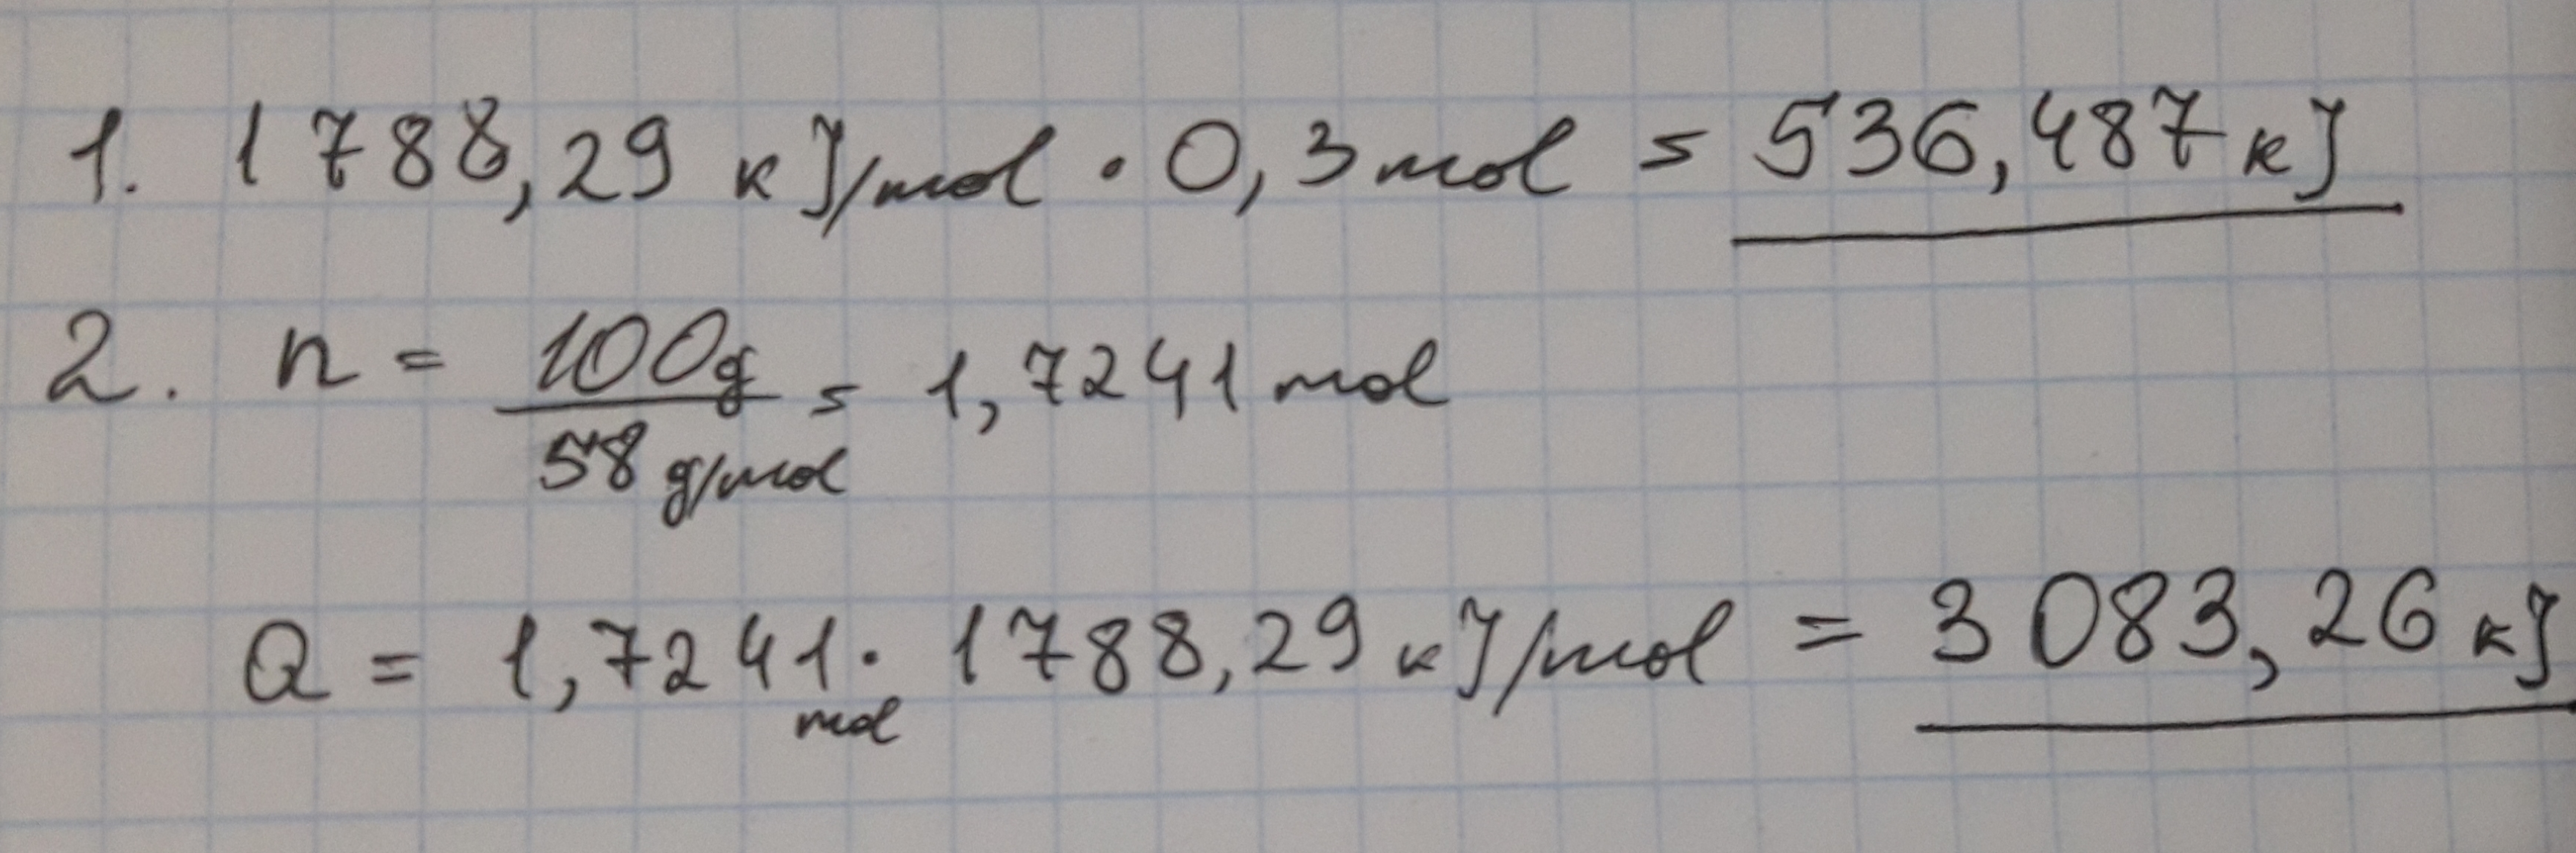 1. 1788,29 кJ/mol · 0,3 mol = 536,487 кJ
2. n = 100g / 58 g/mol = 1,7241 mol
Q = 1,7241 mol · 1788,29 кJ/mol = 3083,26 кJ